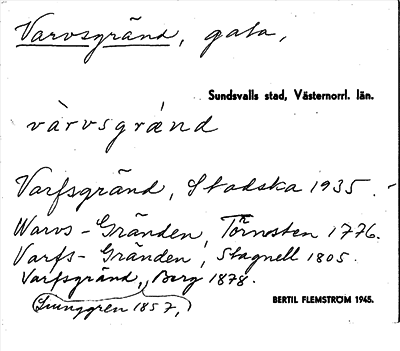 Varvsgränd, gata,
Sundsvalls stad, Västernorrl. län.
vàrvsgränd
Varfsgränd, Stadska 1935.
Warvs-Gränden, Törnsten 1776.
Varfs-Gränden, Stagnell 1805.
Varfsgränd, Berg 1878.
Ljunggren 1857,
BERTIL FLEMSTRÖM 1945.